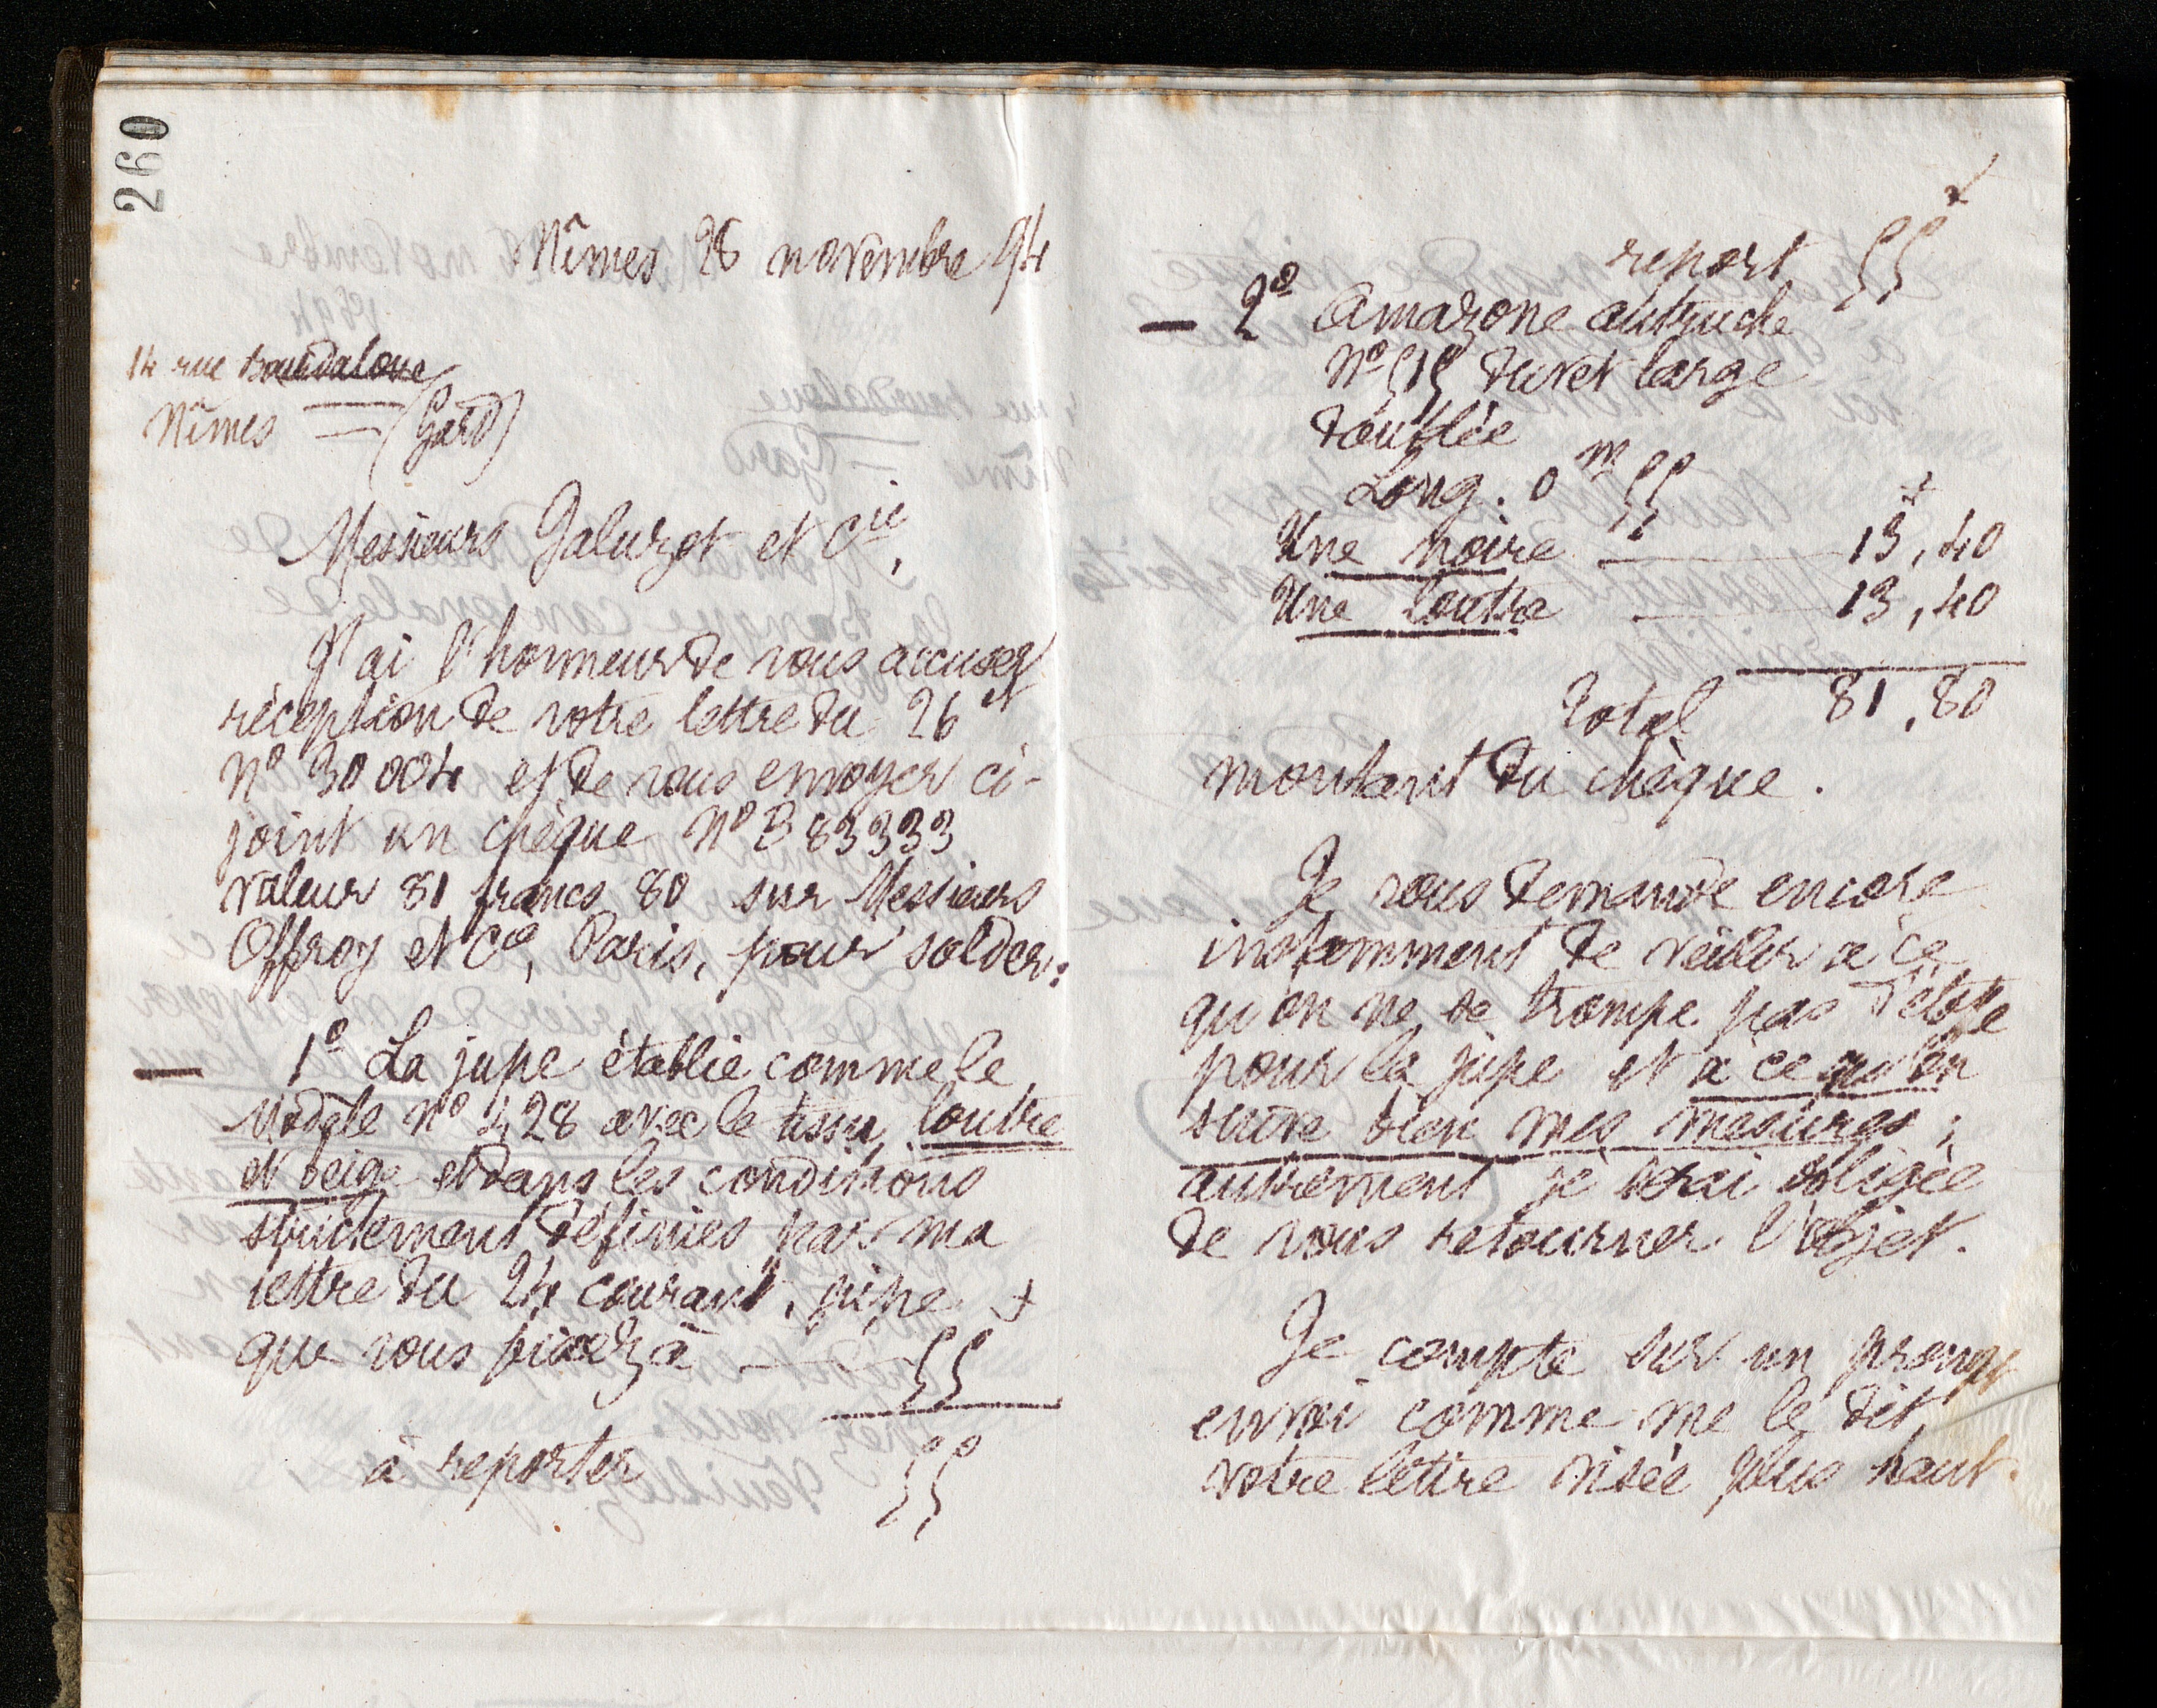 260
Nîmes 28 novembre 94
14 rue Bourdaloue
Nîmes — (Gard)
Messieurs Jaluzot et Cie,
J'ai l'honneur de vous accuser
réception de votre lettre du 26 et
No 30004 et de vous envoyer ci-
joint un chèque No B 83333
valeur 81 francs 80 sur Messieurs
Offroy et Cie, Paris, pour solder:
— 1o La jupe établie comme le
Modèle No 428 avec le tissu loutre
et beige et dans les conditions
strictement définies par ma
lettre du 24 courant, jupe +
que vous fixez à — 55
à reporter 55
report 55
— 2o Amazone autruche
No 515 duvet large
doublée
Long. 0m 55
Une noire — 13,40
Une loutre — 13,40
Total 81,80
montant du chèque.
Je vous demande encore
instamment de veiller à ce
qu'on ne se trompe pas d'étoffe
pour la jupe et à ce qu'on
suive bien mes mesures;
autrement je serai obligée
de vous retourner l'objet.
Je compte sur un prompt
envoi comme me le dit
votre lettre visée plus haut.